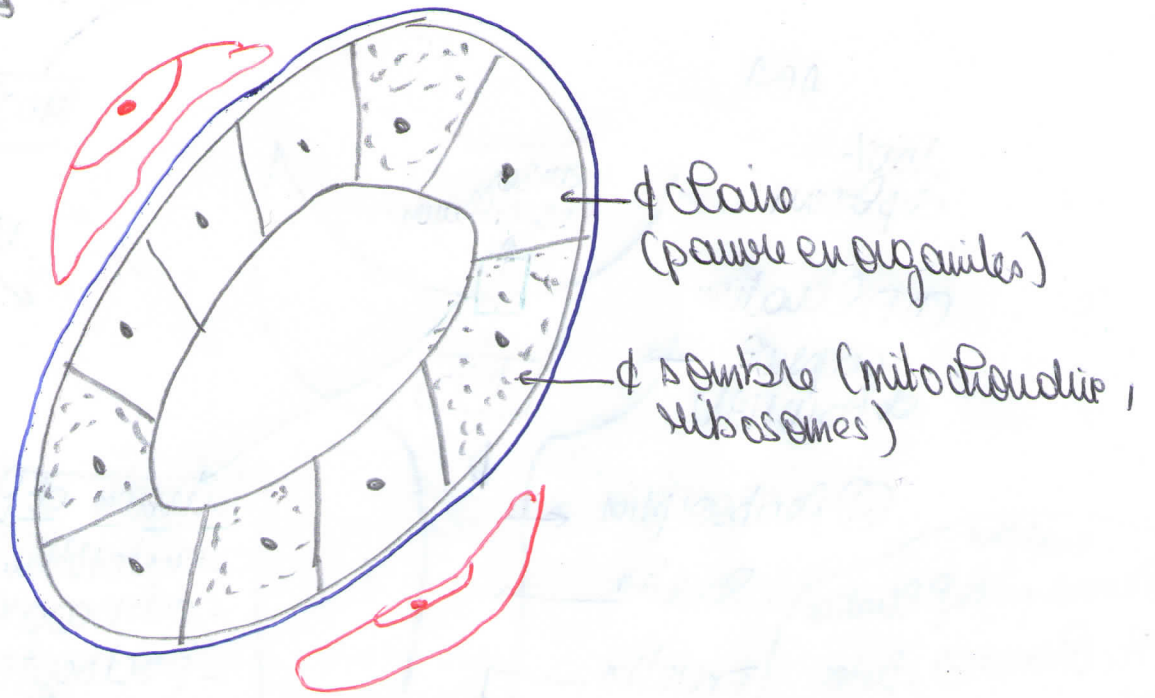 ¢ claire
(pauvre en organites)
¢ sombre (mitochondrie,
ribosomes)